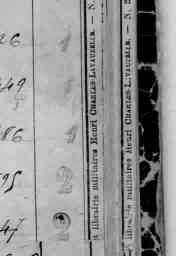 26
1
649
1
186
1
95
2
47
2
et librairie militaires Henri CHARLES-LAVAUZELLE. — N.
librairie militaires Henri CHARLES-LAVAUZELLE. — N.